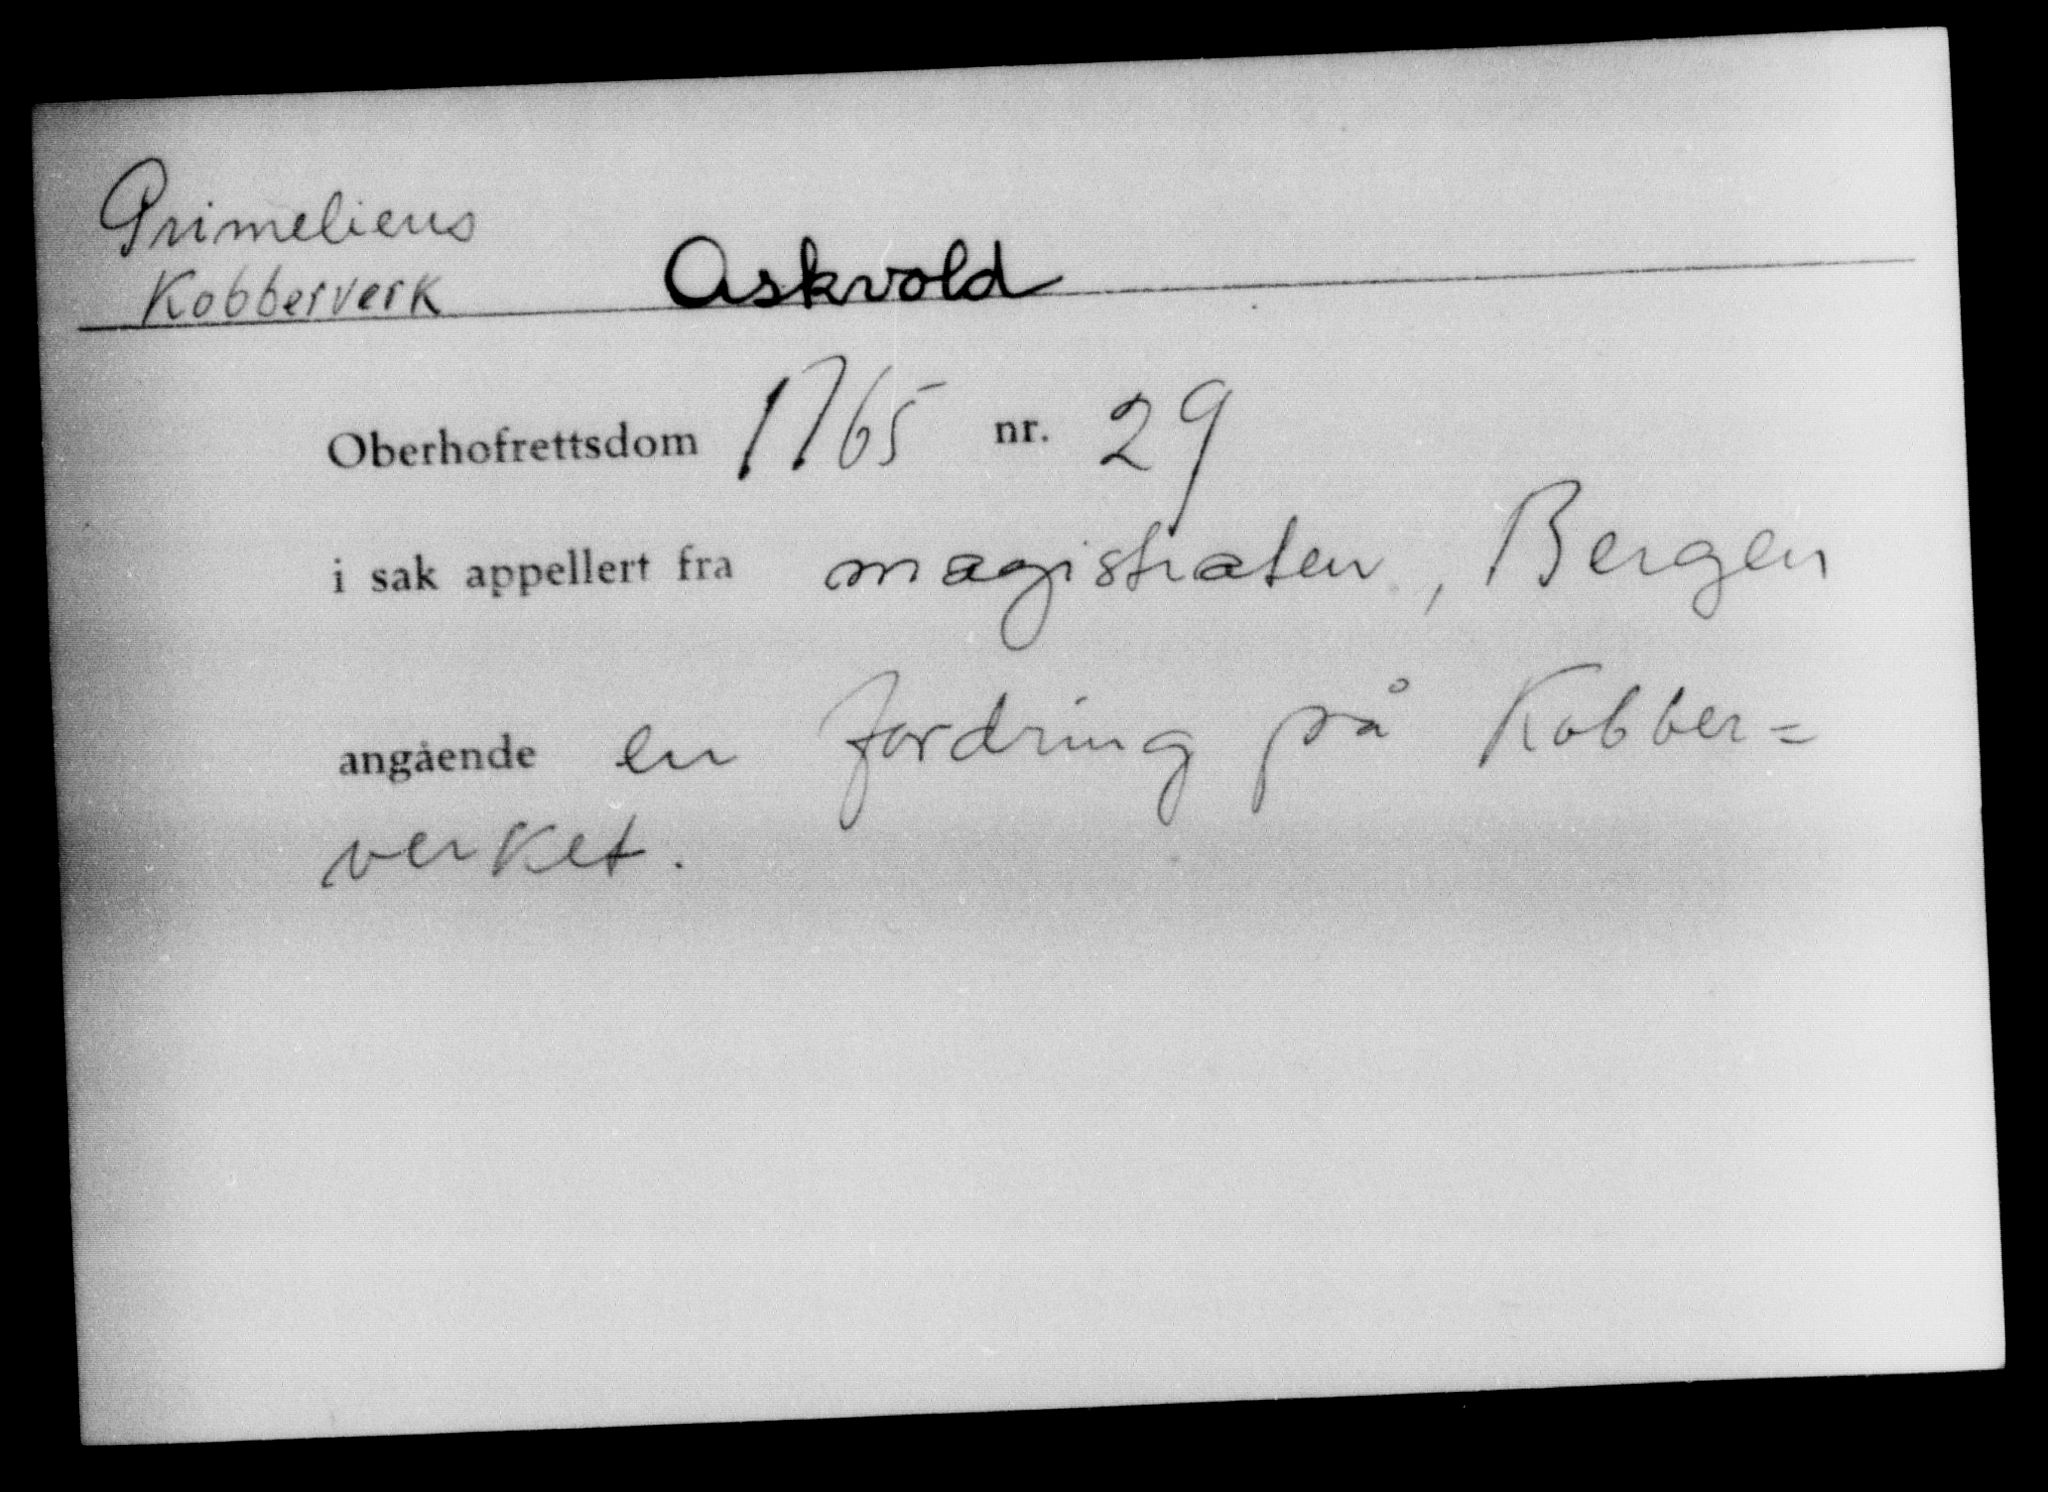 Grimeliens
Kobberverk Askvold
Oberhofrettsdom 1765 nr. 29
i sak appellert fra magistraten, Bergen
angående en fordring på Kobber=
verket.